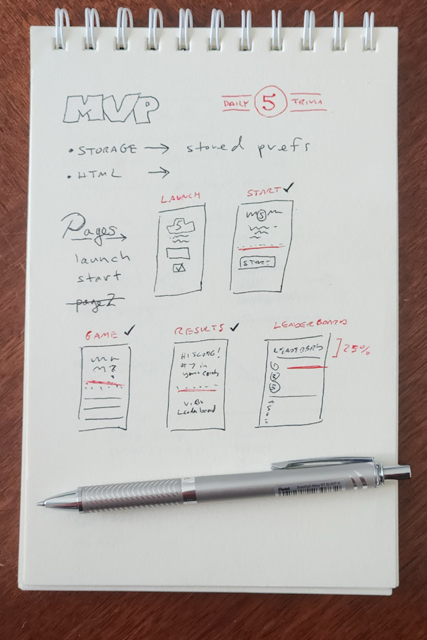 MVP
DAILY 5 TRIVIA
• STORAGE → stored prefs
• HTML →
LAUNCH
START ✓
Pages
launch
start
page2
5
START
GAME ✓
RESULTS ✓
LEADERBOARD
HISCORE!
#7 in
your
view
Leaderboard
LEADERBOARD
1
2
3
25%
Pentel